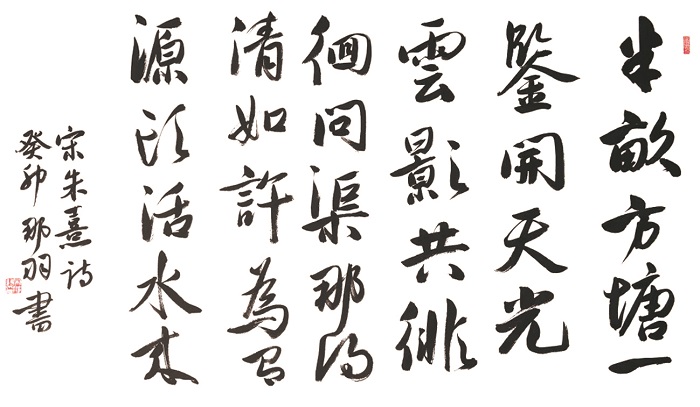 半畝方塘一
鑒開天光
雲影共徘
徊問渠那得
清如許為有
源頭活水来
宋朱熹诗
癸卯那羽書